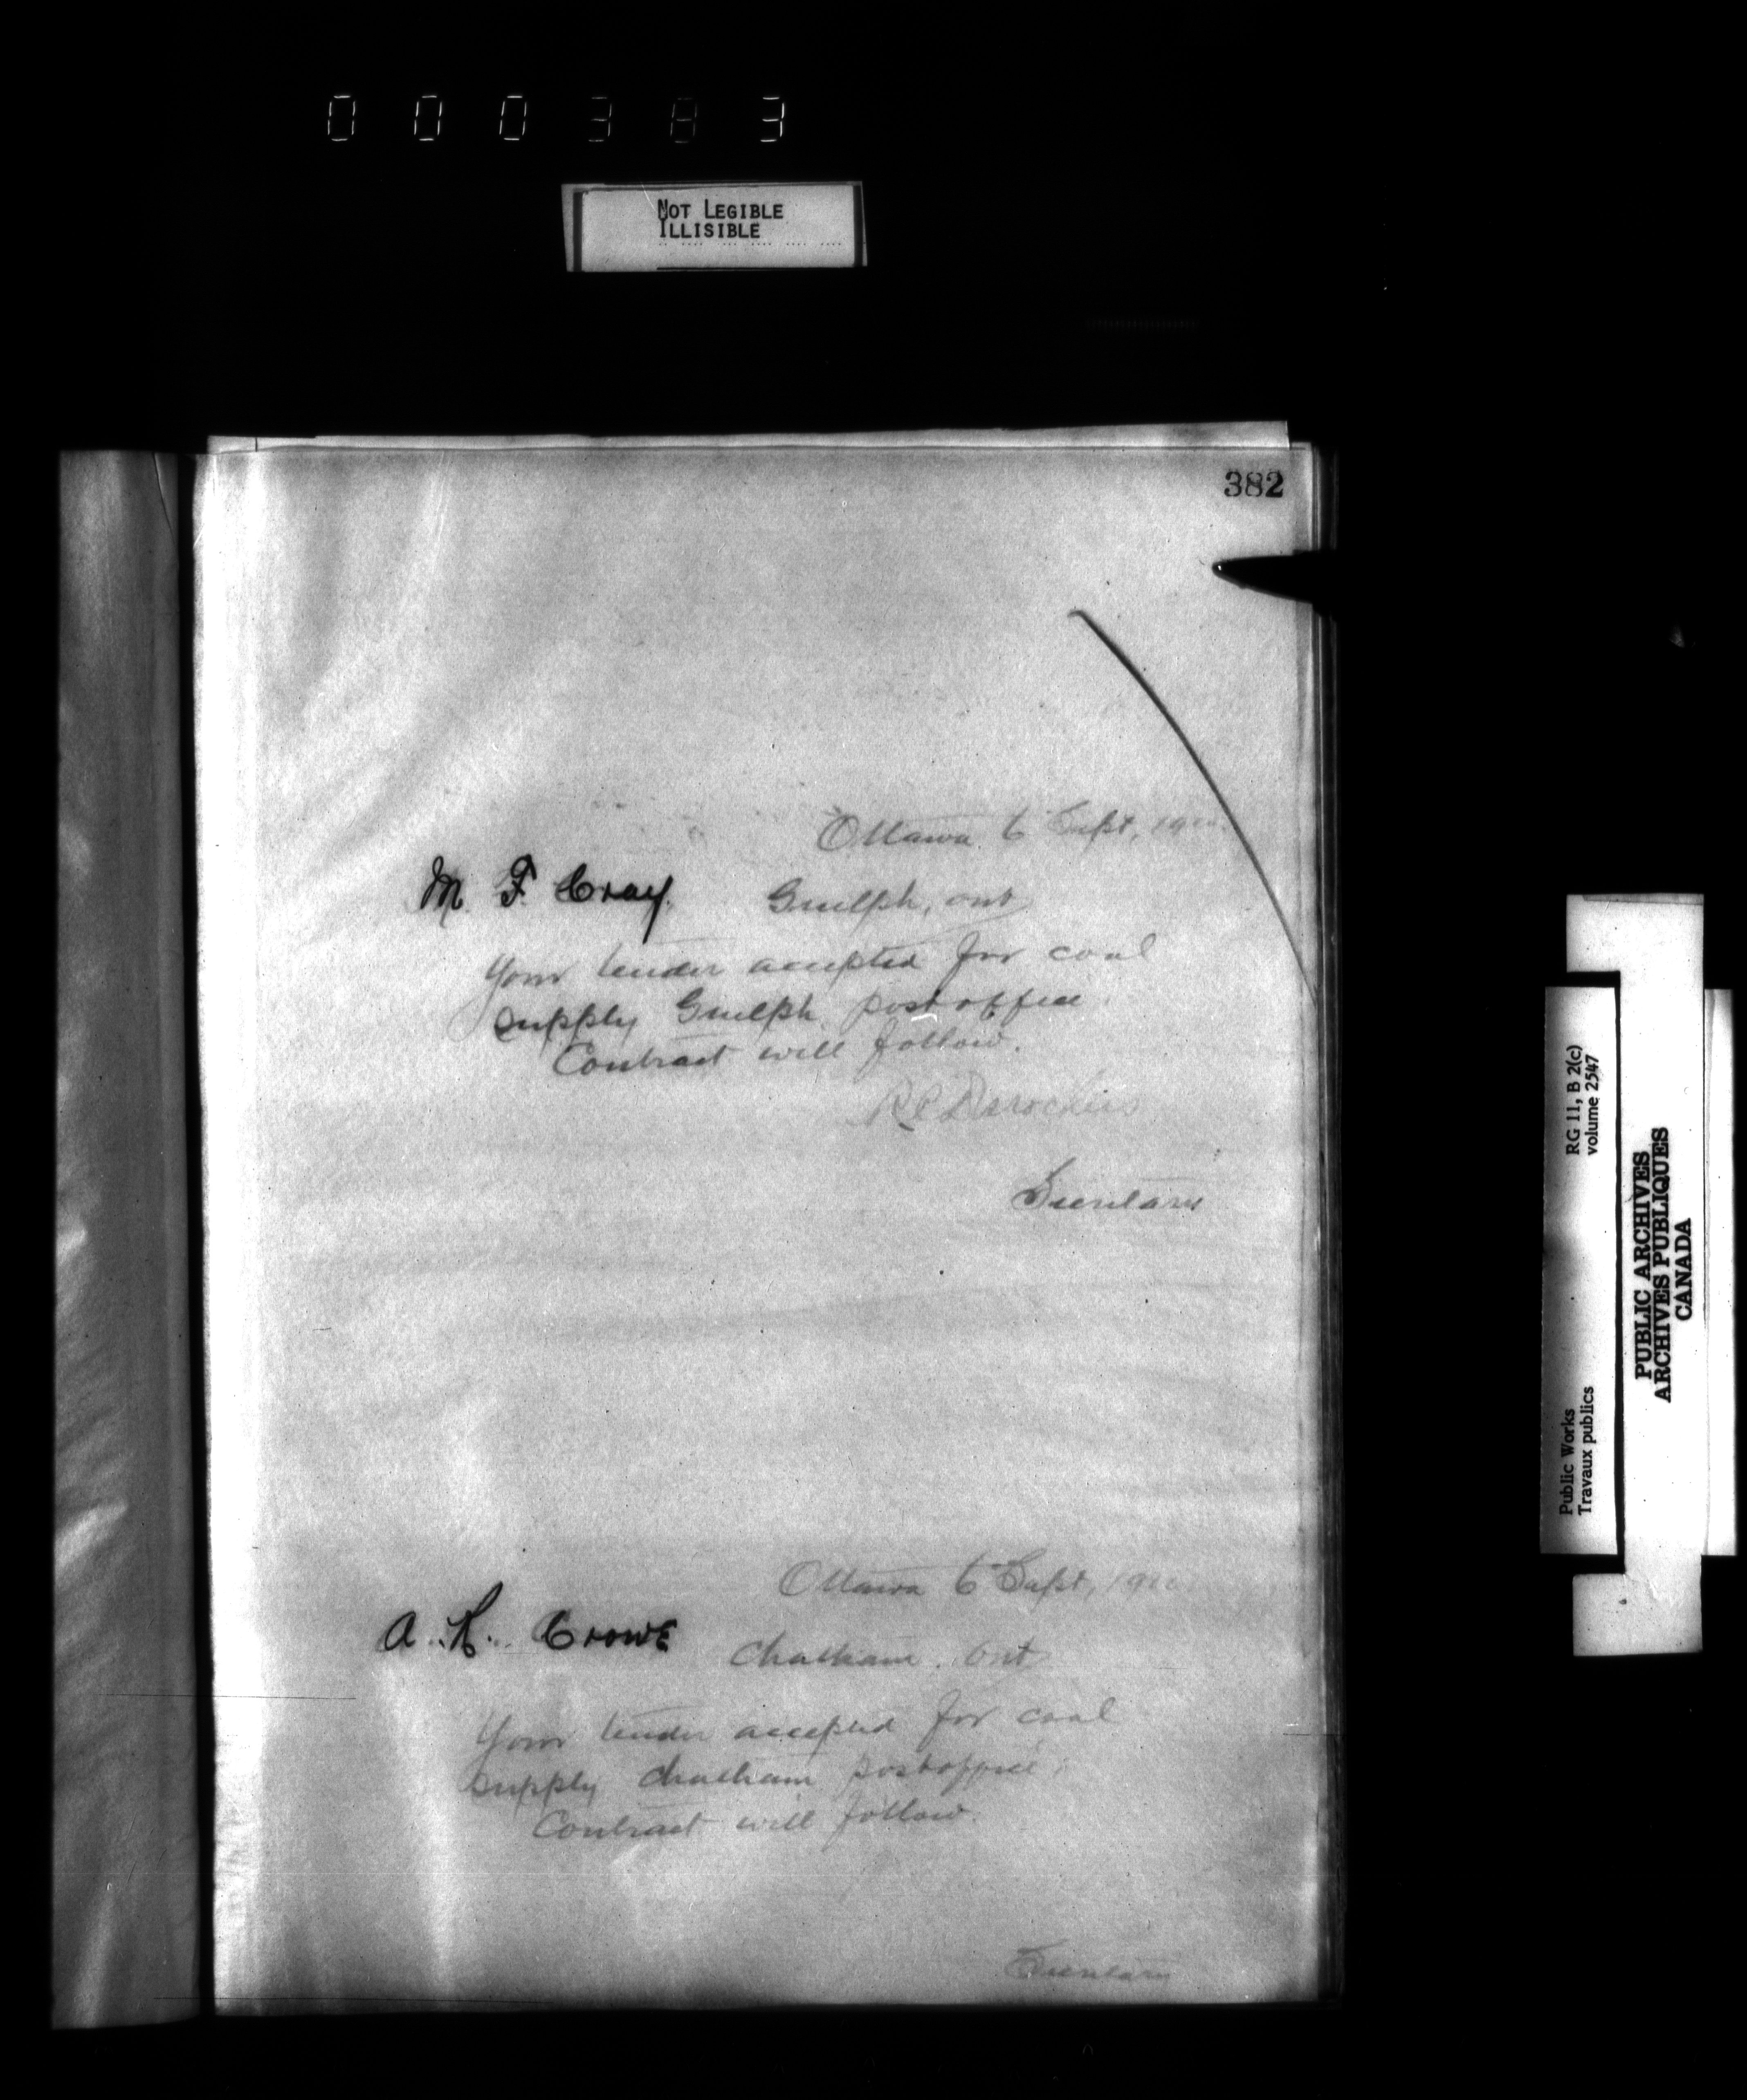 000383
NOT LEGIBLE
ILLISIBLE
382
Ottawa 6 Sept, 19
M. F. Cray. Guelph, Ont
Your tender accepted for coal
supply Guelph post office.
Contract will follow.
Secretary
Ottawa 6 Sept, 19
A. H. Crowe Chatham. Ont
Your tender accepted for coal
supply Chatham post office.
Contract will follow.
Secretary
RG 11, B 2(c)
volume 2547
Public Works
Travaux publics
PUBLIC ARCHIVES
ARCHIVES PUBLIQUES
CANADA